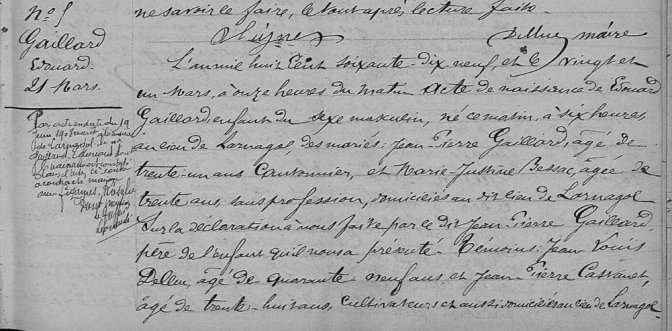 ne savoir le faire, le tout après lecture faite.
Delluc maire
N° 5
Gaillard
Edouard.
21 Mars.
L'an mil huit cent soixante-dix neuf, et le vingt et
un Mars, à onze heures du matin Acte de naissance de Edouard
Gaillard enfant du sexe masculin, né ce matin, à six heures,
au lieu de Larnagol, des mariés: Jean Pierre Gaillard, âgé de
trente-un ans Cantonnier, et Marie-Justine Bessac, âgée de
trente ans, sans profession, domiciliés au dit lieu de Larnagol
Sur la déclaration à nous faite par le dit Jean-Pierre Gaillard
père de l'enfant qu'il nous a présenté - Témoins: Jean Louis
Delluc, âgé de quarante-neuf ans, et Jean-Pierre Cassanet,
âgé de trente-huit ans, cultivateurs et aussi domiciliés au lieu de Larnagol
Par acte en date du 19
de Larnagol
Gaillard, Edouard
a contracté mariage
avec